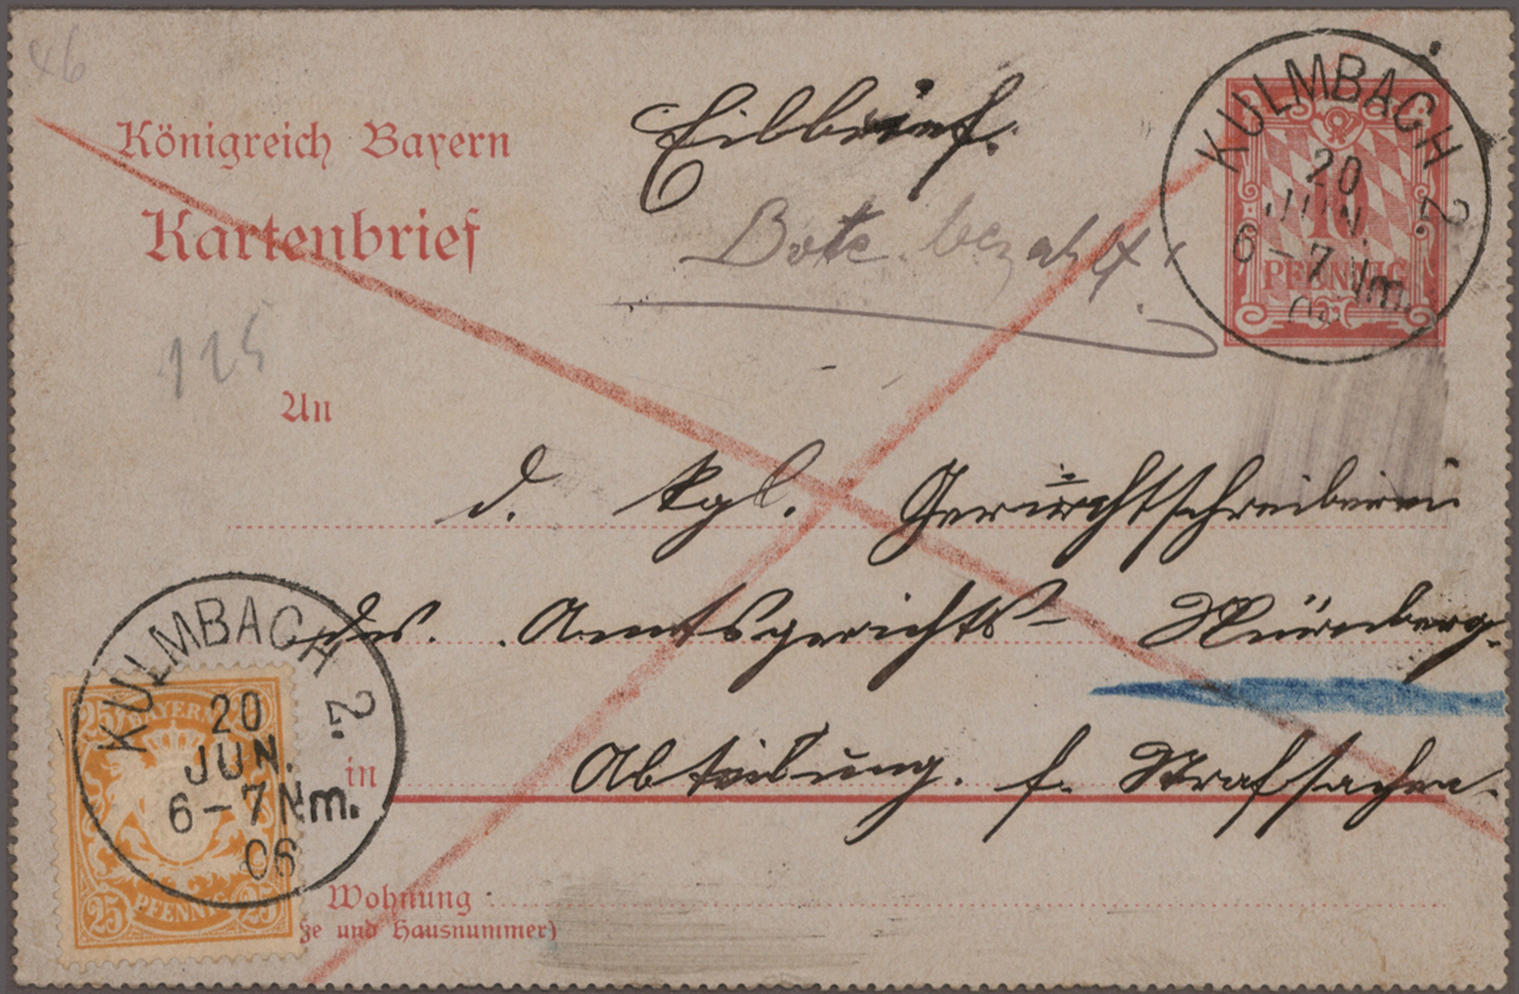 46
Königreich Bayern
Kartenbrief
Eilbrief.
Bote bezahlt.
KULMBACH 2.
20
JUN.
6-7 Nm.
10
PFENNIG
125
An
d. kgl. Gerichtschreiberei
des Amtsgerichts- Nürnberg.
Abteilung. f. Strafsachen.
in
KULMBACH 2.
20
JUN.
6-7 Nm.
06
25 BAYERN 25
25 PFENNIG 25
Wohnung
ße und Hausnummer)